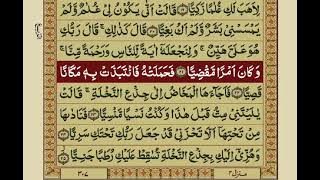 لِاَهَبَ لَكِ غُلٰمًا زَكِيًّا ۝۱۹ قَالَتْ اَنّٰى يَكُوْنُ لِيْ غُلٰمٌ وَّلَمْ
يَمْسَسْنِيْ بَشَرٌ وَّلَمْ اَكُ بَغِيًّا ۝۲۰ قَالَ كَذٰلِكِ ۚ قَالَ رَبُّكِ
هُوَ عَلَيَّ هَيِّنٌ ۚ وَلِنَجْعَلَهٗۤ اٰيَةً لِّلنَّاسِ وَرَحْمَةً مِّنَّا ۚ
وَكَانَ اَمْرًا مَّقْضِيًّا ۝۲۱ فَحَمَلَتْهُ فَانْتَبَذَتْ بِهٖ مَكَانًا
قَصِيًّا ۝۲۲ فَاَجَآءَهَا الْمَخَاضُ اِلٰى جِذْعِ النَّخْلَةِ ۚ قَالَتْ
يٰلَيْتَنِيْ مِتُّ قَبْلَ هٰذَا وَكُنْتُ نَسْيًا مَّنْسِيًّا ۝۲۳ فَنَادٰىهَا
مِنْ تَحْتِهَاۤ اَلَّا تَحْزَنِيْ قَدْ جَعَلَ رَبُّكِ تَحْتَكِ سَرِيًّا ۝۲۴
وَهُزِّيْۤ اِلَيْكِ بِجِذْعِ النَّخْلَةِ تُسٰقِطْ عَلَيْكِ رُطَبًا جَنِيًّا ۝۲۵
منزل ۴ ۳۰۷